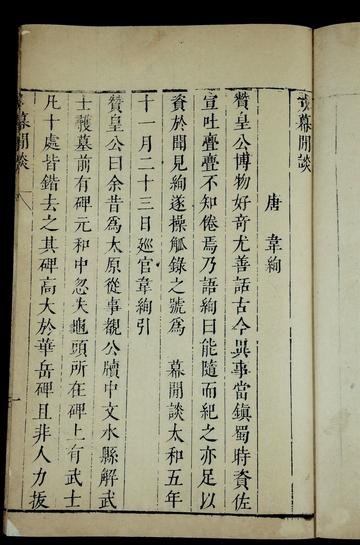 戎幕閒談
唐 韋絢
贊皇公博物好奇尤善話古今異事當鎮蜀時資佐
宣吐亹亹不知倦焉乃語絢曰能隨而紀之亦足以
資於聞見絢遂操觚錄之號為 幕閒談太和五年
十一月二十三日廵官韋絢引
贊皇公曰余昔為太原從事覩公牘中文水縣解武
士彠墓前有碑元和中忽失龜頭所在碑上有武士
凡十處皆鐫去之其碑高大於華岳碑且非人力拔
幕閒談
一